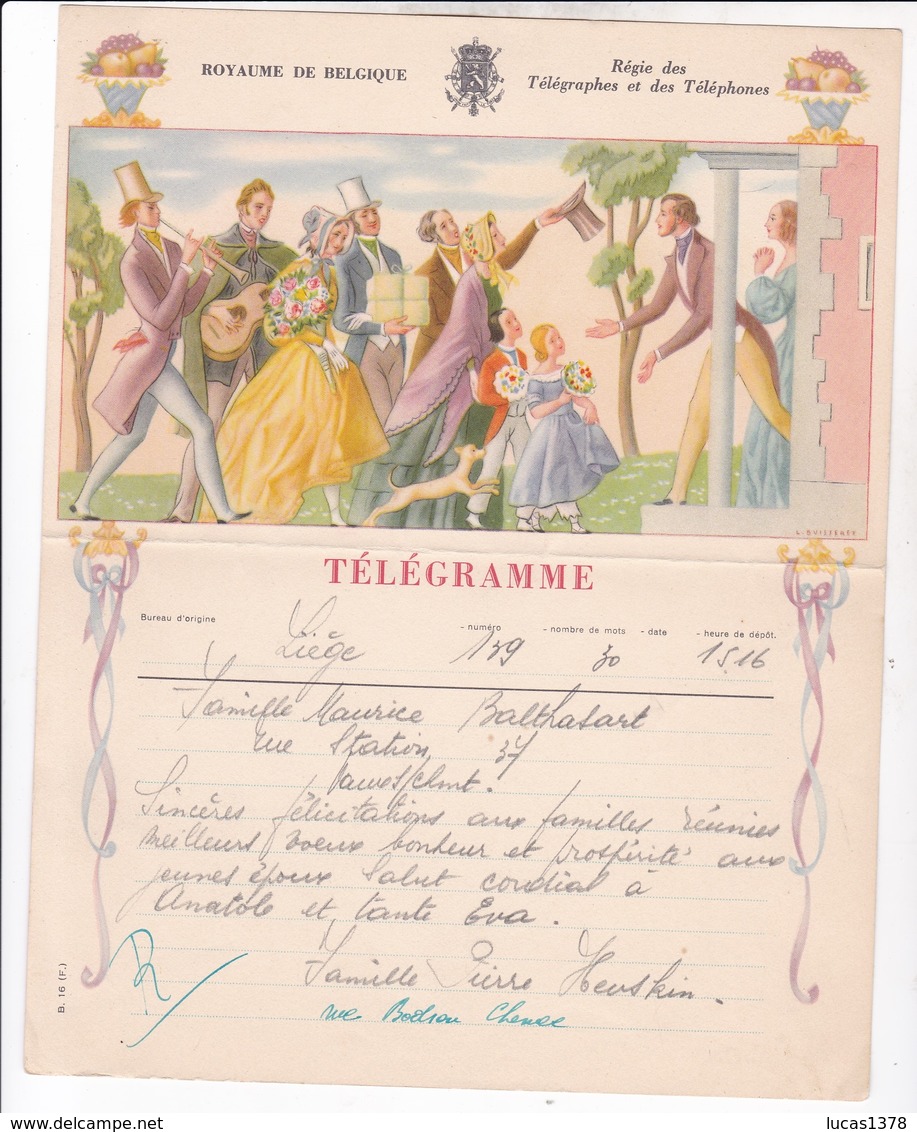 lucas1378
ROYAUME DE BELGIQUE
Régie des
Télégraphes et des Téléphones
TÉLÉGRAMME
Bureau d'origine - numéro - nombre de mots - date - heure de dépôt.
Liège 139 30 1516
Famille Maurice Balthasart
rue Station 37
Sincères félicitations aux familles réunies
meilleurs voeux bonheur et prospérité aux
jeunes époux Salut cordial à
Anatole et tante Eva.
Famille Pierre Heuskin.
rue Bodson Chenee
B. 16 (F.)
delcampe.net
lucas1378